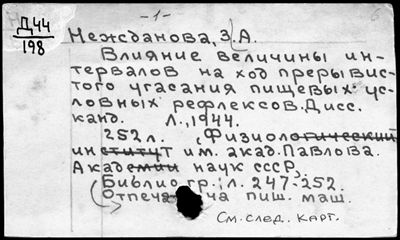 Д44
198
-1-
6
Нежданова, З.А.
Влияние величины ин-
тервалов на ход прерывис-
того угасания пищевых ус-
ловных рефлексов. Дисс.
канд. Л., 1944.
252 л. , Физиологический
институт им. акад. Павлова.
Академии наук СССР,
Библиогр.: л. 247-252.
Отпеча на пиш. маш.
См. след. карт.